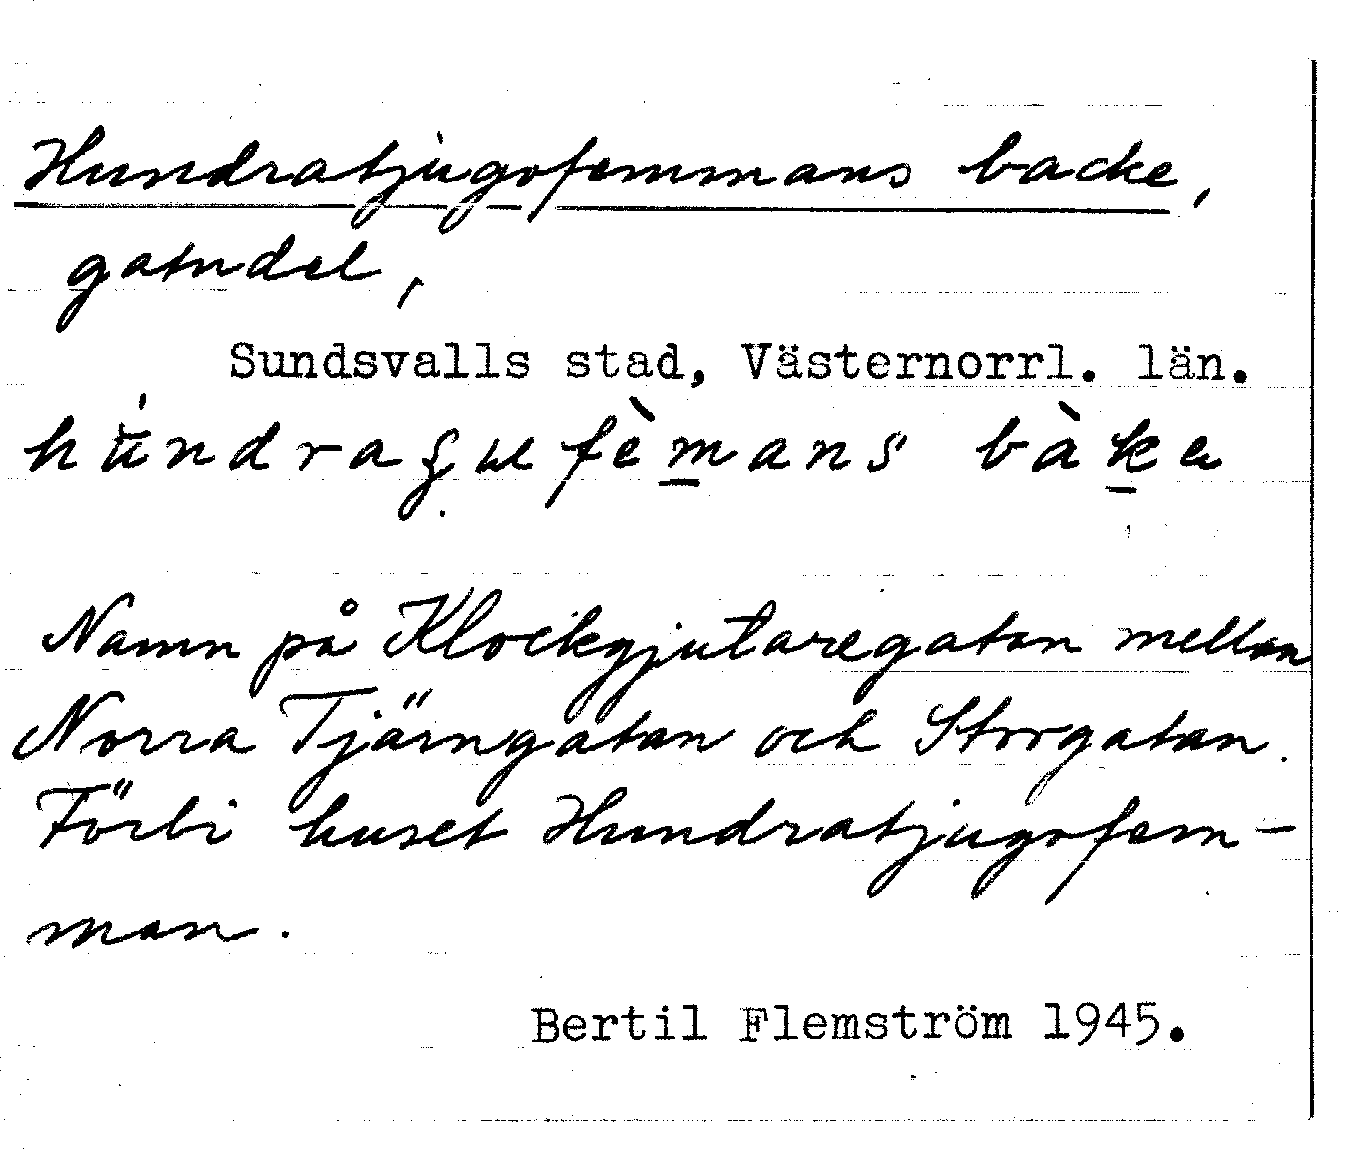 Hundratjugofemmans backe,
gatudel,
Sundsvalls stad, Västernorrl. län.
bàka
Namn på Klockgjutaregatan mellan
Norra Tjärngatan och Storgatan.
Förbi huset Hundratjugofem-
man.
Bertil Flemström 1945.